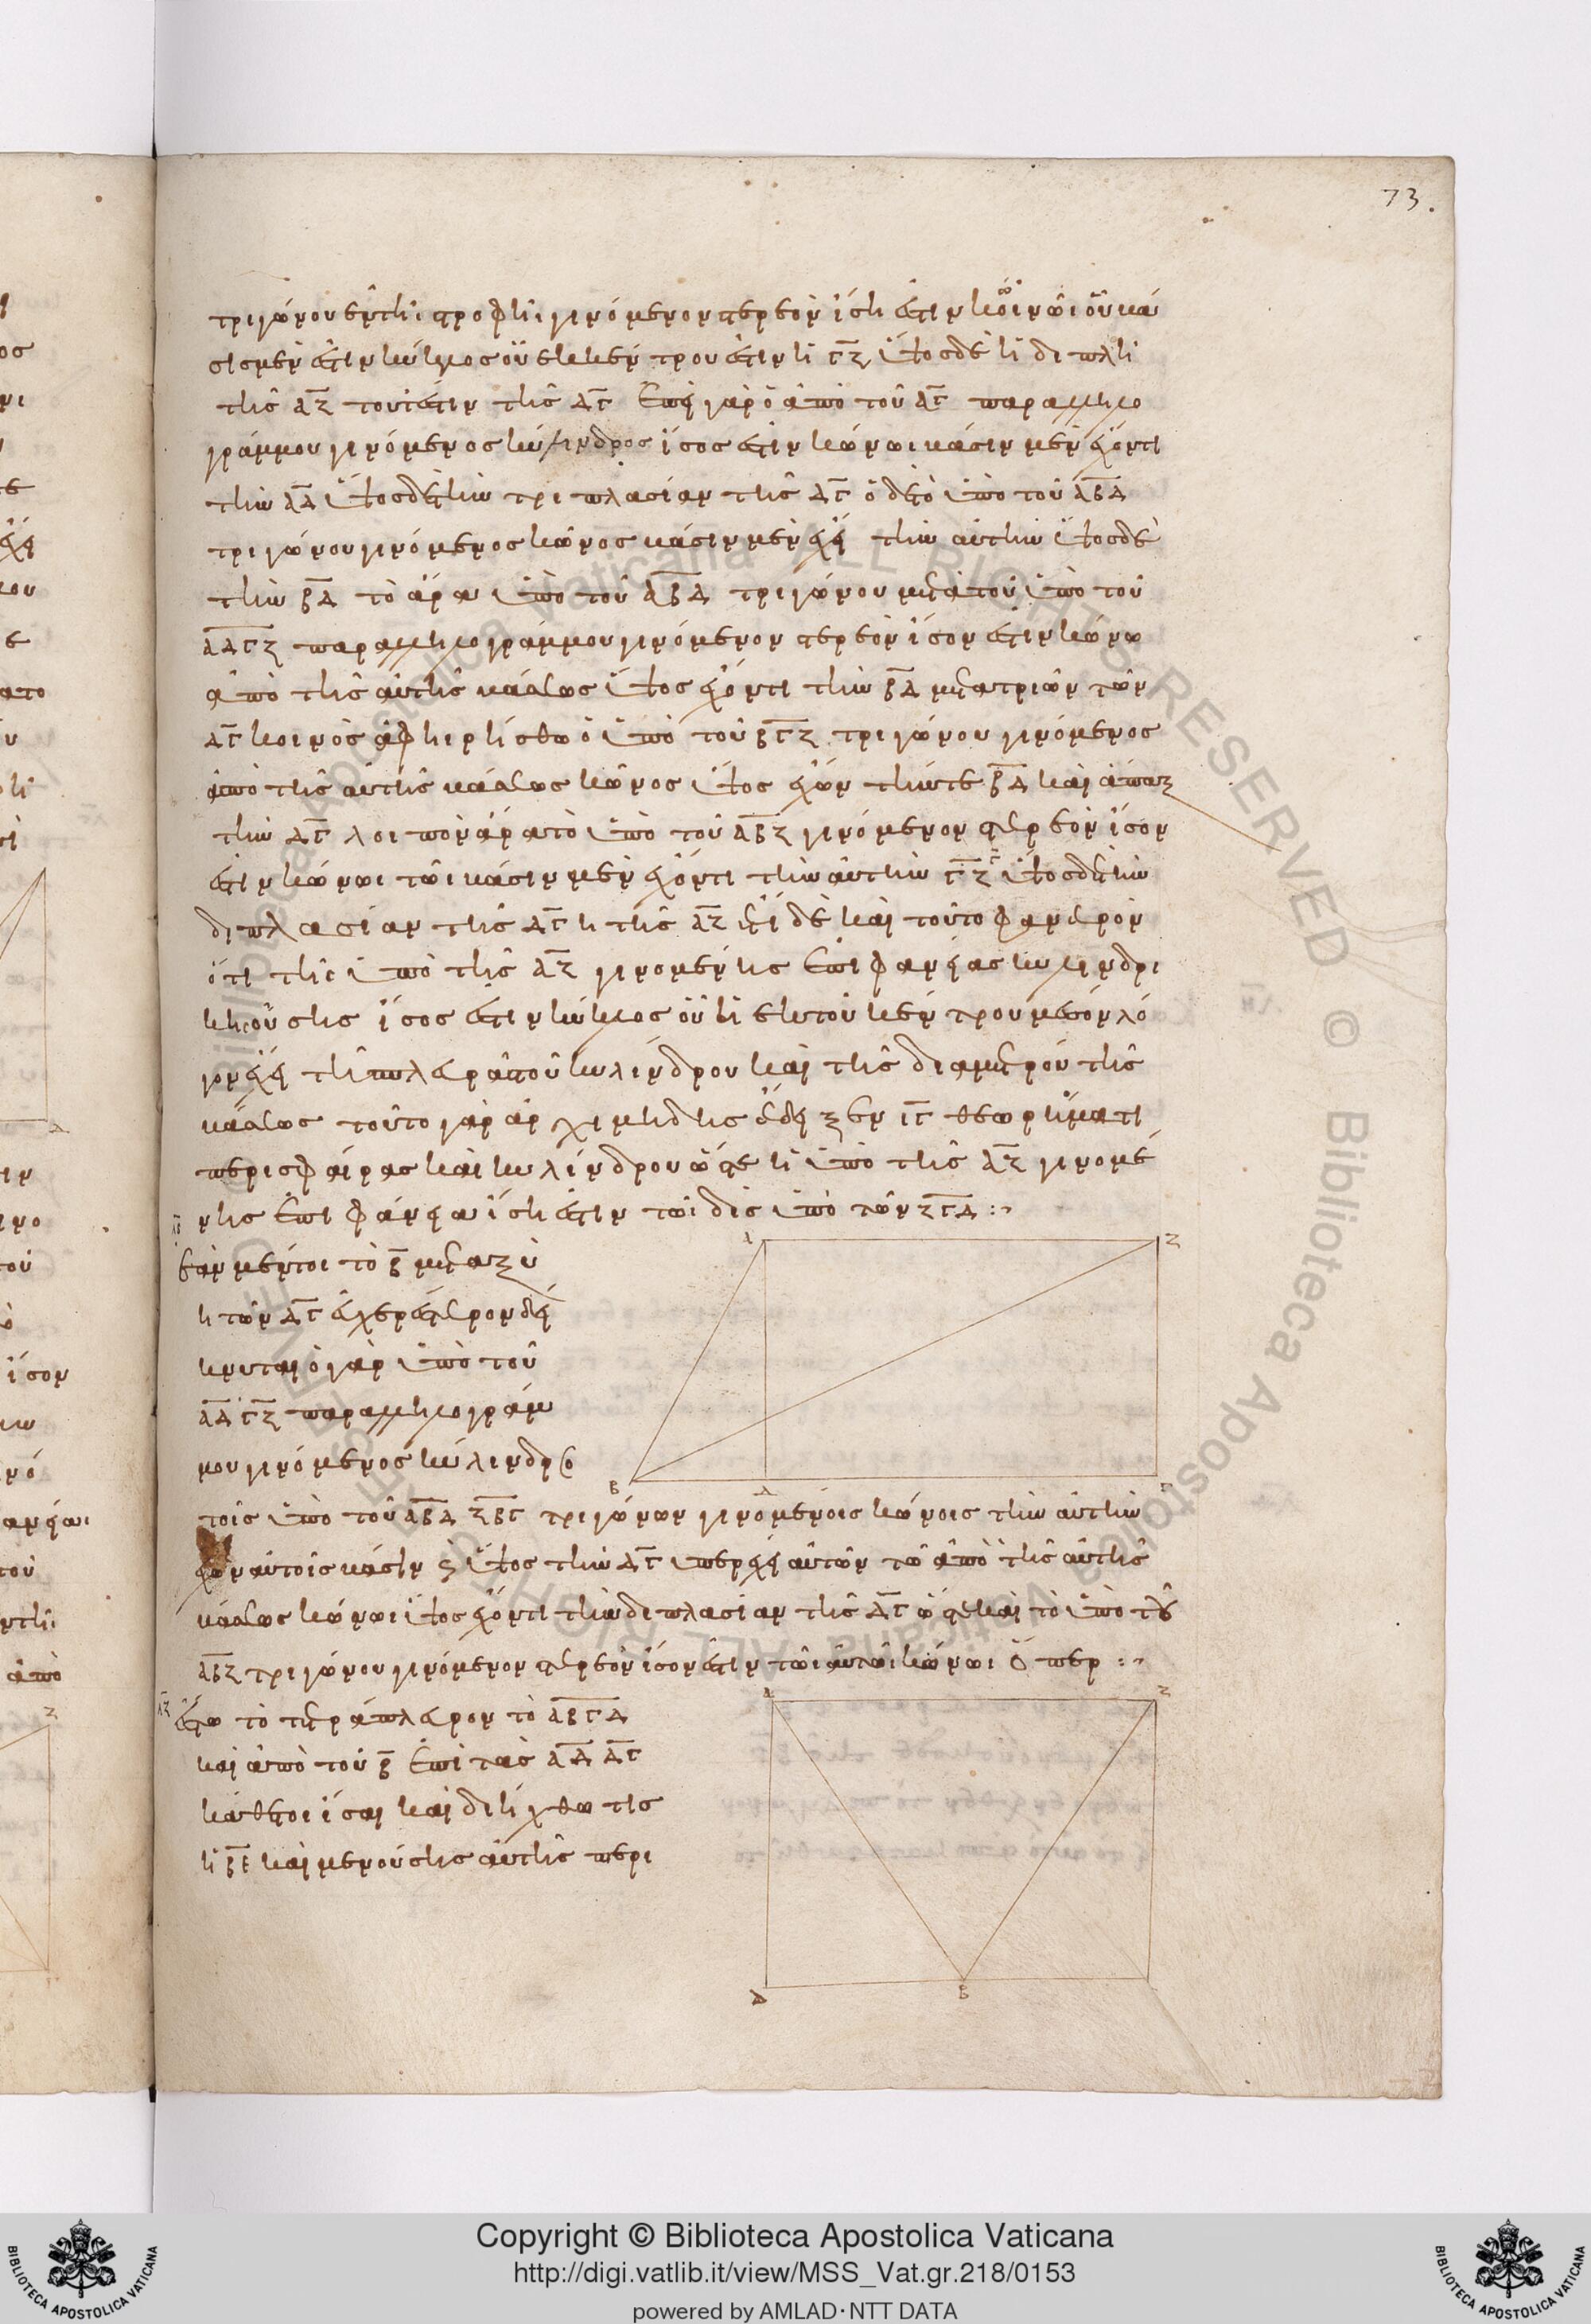 73.
τριγώνου ἐν τῆι στροφῆι γινόμενον στερεὸν ἴση ἐστὶν κώνωι οὗ βά
σις μέν ἐστιν κύκλος οὗ ἐκ κέντρου ἐστὶν ἡ ΓΖ ὕψος δὲ ἡ διπλῆ
τῆς ΑΖ τουτέστιν τῆς ΔΓ ἐπεὶ γὰρ ὁ ἀπὸ τοῦ ΑΓ παραλληλο
γράμμου γινόμενος κύλινδρος ἴσος ἐστὶν κώνωι βάσιν μὲν ἔχοντι
τὴν ΑΔ ὕψος δὲ τὴν τριπλασίαν τῆς ΔΓ ὁ δὲ ἀπὸ τοῦ ΑΒΔ
τριγώνου γινόμενος κῶνος βάσιν μὲν ἔχει τὴν αὐτὴν ὕψος δὲ
τὴν ΒΔ τὸ ἄρα ὑπὸ τοῦ ΑΒΔ τριγώνου μετὰ τοῦ ὑπὸ τοῦ
ΑΔΓΖ παραλληλογράμμου γινόμενον στερεὸν ἴσον ἐστὶν κώνω
ἀπὸ τῆς αὐτῆς βάσεως ὕψος ἔχοντι τὴν ΒΔ μετὰ τριῶν τῶν
ΔΓ κοινὸς ἀφηιρήσθω ὁ ὑπὸ τοῦ ΒΓΖ τριγώνου γινόμενος
ἀπὸ τῆς αὐτῆς βάσεως κῶνος ὕψος ἔχων τήν τε ΒΔ καὶ ἅπαξ
τὴν ΔΓ λοιπὸν ἄρα τὸ ὑπὸ τοῦ ΑΒΖ γινόμενον στερεὸν ἴσον
ἐστὶν κώνωι τῶι βάσιν μὲν ἔχοντι τὴν αὐτὴν ΓΖ ὕψος δὲ τὴν
διπλασίαν τῆς ΔΓ ἢ τῆς ΑΖ ἔτι δὲ καὶ τοῦτο φανερὸν
ὅτι τῆς ὑπὸ τῆς ΑΖ γινομένης ἐπιφανείας κυλινδρι
κῆς οὔσης ἴσος ἐστὶν κύκλος οὗ ἡ ἐκ τοῦ κέντρου μέσον λό
γον ἔχει τῆς πλευρᾶς τοῦ κυλίνδρου καὶ τῆς διαμέτρου τῆς
βάσεως τοῦτο γὰρ ἀρχιμήδης ἔδειξεν ΙΓ θεωρήματι
περὶ σφαίρας καὶ κυλίνδρου ὥστε ἡ ὑπὸ τῆς ΑΖ γινομέ
νης ἐπιφάνεια ἴση ἐστὶν τῶι δὶς ὑπὸ τῶν ΖΓΔ :~
ἐὰν μέντοι τὸ Β μεταξὺ
ἢ τῶν ΔΓ εὐχερέστερον δεί
κνυται ὁ γὰρ ὑπὸ τοῦ
ΑΔ ΓΖ παραλληλογράμ
μου γινόμενος κύλινδρο
τοῖς ὑπὸ τοῦ ΑΒΔ ΖΒΓ τριγώνων γινομένοις κώνοις τὴν αὐτὴν
ἔχων αὐτοῖς βάσιν καὶ ὕψος τὴν ΔΓ ὑπερέχει αὐτῶν τῶ ἀπὸ τῆς αὐτῆς
βάσεως κώνωι ὕψος ἔχοντι τὴν διπλασίαν τῆς ΔΓ ὥστε καὶ τὸ ὑπὸ τοῦ
ΑΒΖ τριγώνου γινόμενον στερεὸν ἴσον ἐστὶν τῶι αὐτῶι κώνωι ὅπερ :~
ἔστω τὸ τετράπλευρον τὸ ΑΒΓΔ
καὶ ἀπὸ τοῦ Β ἐπὶ τὰς ΑΔ ΔΓ
κάθετοι ἴσαι καὶ διήχθω τις
ἡ ΒΕ καὶ μενούσης αὐτῆς περι
Α Ζ
Β Δ
Α Ζ
Δ Β
Copyright © Biblioteca Apostolica Vaticana
http://digi.vatlib.it/view/MSS_Vat.gr.218/0153
powered by AMLAD·NTT DATA